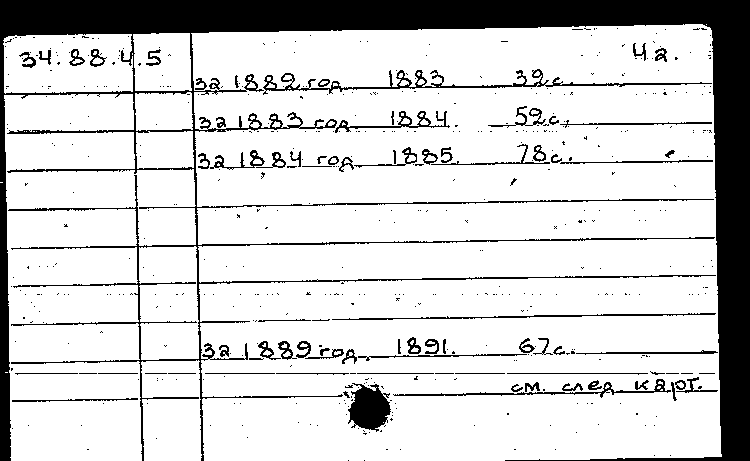 34.88.4.5 4а.
за 1882 год 1883. 39с.
за 1883 год 1884. 59с.
за 1884 год 1885. 78с.
за 1889 год. 1891. 67с.
см. след. карт.